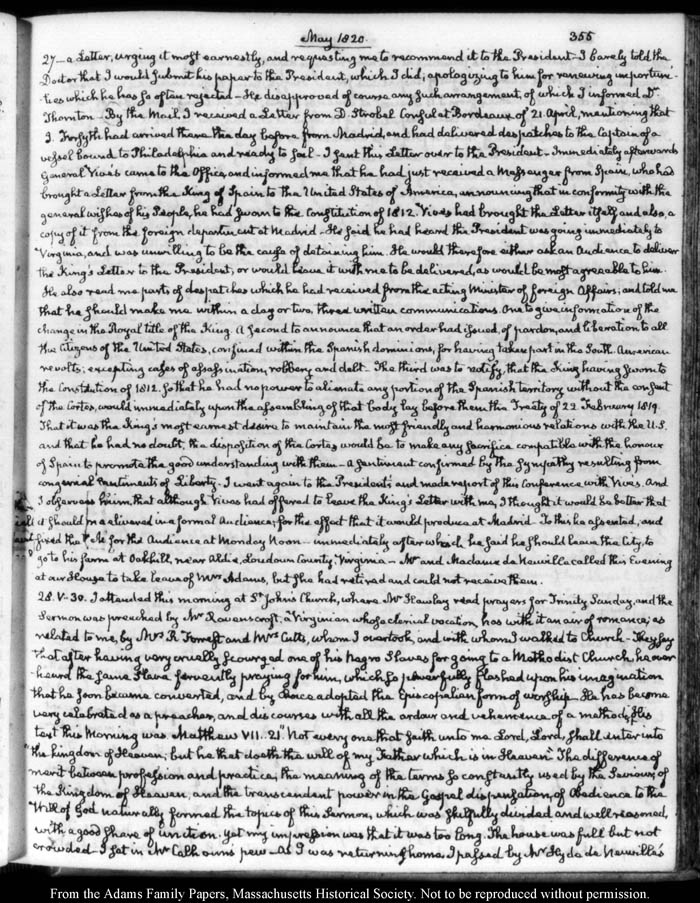 May 1820.
355
27 — a Letter, urging it most earnestly, and requesting me to recommend it to the President — I barely told the
Doctor that I would submit his paper to the President, which I did; apologizing to him for renewing importuni-
-ties which he has so often rejected — He disapproved of course any such arrangement, of which I informed Dr
Thornton — By the Mail, I received a Letter from D. Strobel Consul at Bordeaux of 21 April, mentioning that
J. Forsyth had arrived there the day before from Madrid, and had delivered despatches to the Captain of a
vessel bound to Philadelphia and ready to sail — I sent this Letter over to the President — Immediately afterwards
General Vivés came to the Office, and informed me that he had just received a Messenger from Spain, who had
brought a Letter from the King of Spain to the United States of America, announcing that in conformity with the
general wishes of his People, he had sworn to the Constitution of 1812. Vivés had brought the Letter itself and also, a
copy of it from the foreign department at Madrid — He said he had heard the President was going immediately to
Virginia, and was unwilling to be the cause of detaining him. He would therefore either ask an Audience to deliver
the King's Letter to the President, or would leave it with me to be delivered, as would be most agreeable to him.
He also read me parts of despatches which he had received from the acting Minister of foreign Affairs; and told me
that he should make me within a day or two, three written communications. One to give information of the
change in the Royal title of the King. A second to announce that an order had issued, of pardon, and liberation to all
the Citizens of the United States, confined within the Spanish dominions, for having taken part in the South American
revolts; excepting cases of assassination, robbery and debt. The third was to notify, that the King having sworn to
the Constitution of 1812, so that he had no power to alienate any portion of the Spanish territory without the consent
of the Cortes, would immediately upon the assembling of that body lay before them the Treaty of 22 February 1819.
That it was the King's most earnest desire to maintain the most friendly and harmonious relations with the U.S.
and that he had no doubt, the disposition of the Cortes would be to make any sacrifice compatible with the honour
of Spain to promote the good understanding with them — a sentiment confirmed by the sympathy resulting from
congenial sentiments of Liberty. I went again to the President's and made report of this Conference with Vivés. And
I observed to him, that although Vivés had offered to leave the King's Letter with me, I thought it would be better that
it should be delivered in a formal Audience; for the effect that it would produce at Madrid. To this he assented, and
fixed the time for the Audience at Monday Noon — immediately after which, he said he should leave the City, to
go to his farm at Oakhill, near Aldie, Loudoun County, Virginia — Mr and Madame de Neuville called this Evening
at our House to take leave of Mrs Adams, but she had retired and could not receive them.
28. V. 30. I attended this morning at St. John's Church, where Mr Hawley read prayers for Trinity Sunday, and the
Sermon was preached by Mr Ravenscroft, a Virginian whose clerical vocation, has with it an air of romance; as
related to me, by Mrs R Forrest and Mrs Cutts, whom I overtook, and with whom I walked to Church — They say
that after having very cruelly scourged one of his Negro Slaves for going to a Methodist Church, he over-
heard the same Slave fervently praying for him, which so powerfully flashed upon his imagination
that he soon became converted, and by choice adopted the Episcopalian form of worship — He has become
very celebrated as a preacher, and discourses with all the ardour and vehemence of a methodist. His
text this Morning was Matthew VII. 21. "Not every one that saith unto me Lord, Lord, shall enter into
"the kingdom of Heaven; but he that doeth the will of my Father which is in Heaven." The difference of
merit between profession and practice, the meaning of the terms so constantly used by the Saviour, of
the Kingdom of Heaven, and the transcendent power in the Gospel dispensation, of Obedience to the
Will of God naturally formed the topics of this Sermon, which was skilfully divided and well reasoned,
with a good share of unction. yet my impression was that it was too long. The house was full but not
crowded — I sat in Mr Calhoun's pew — As I was returning home, I passed by Mr Hyde de Neuville's
From the Adams Family Papers, Massachusetts Historical Society. Not to be reproduced without permission.